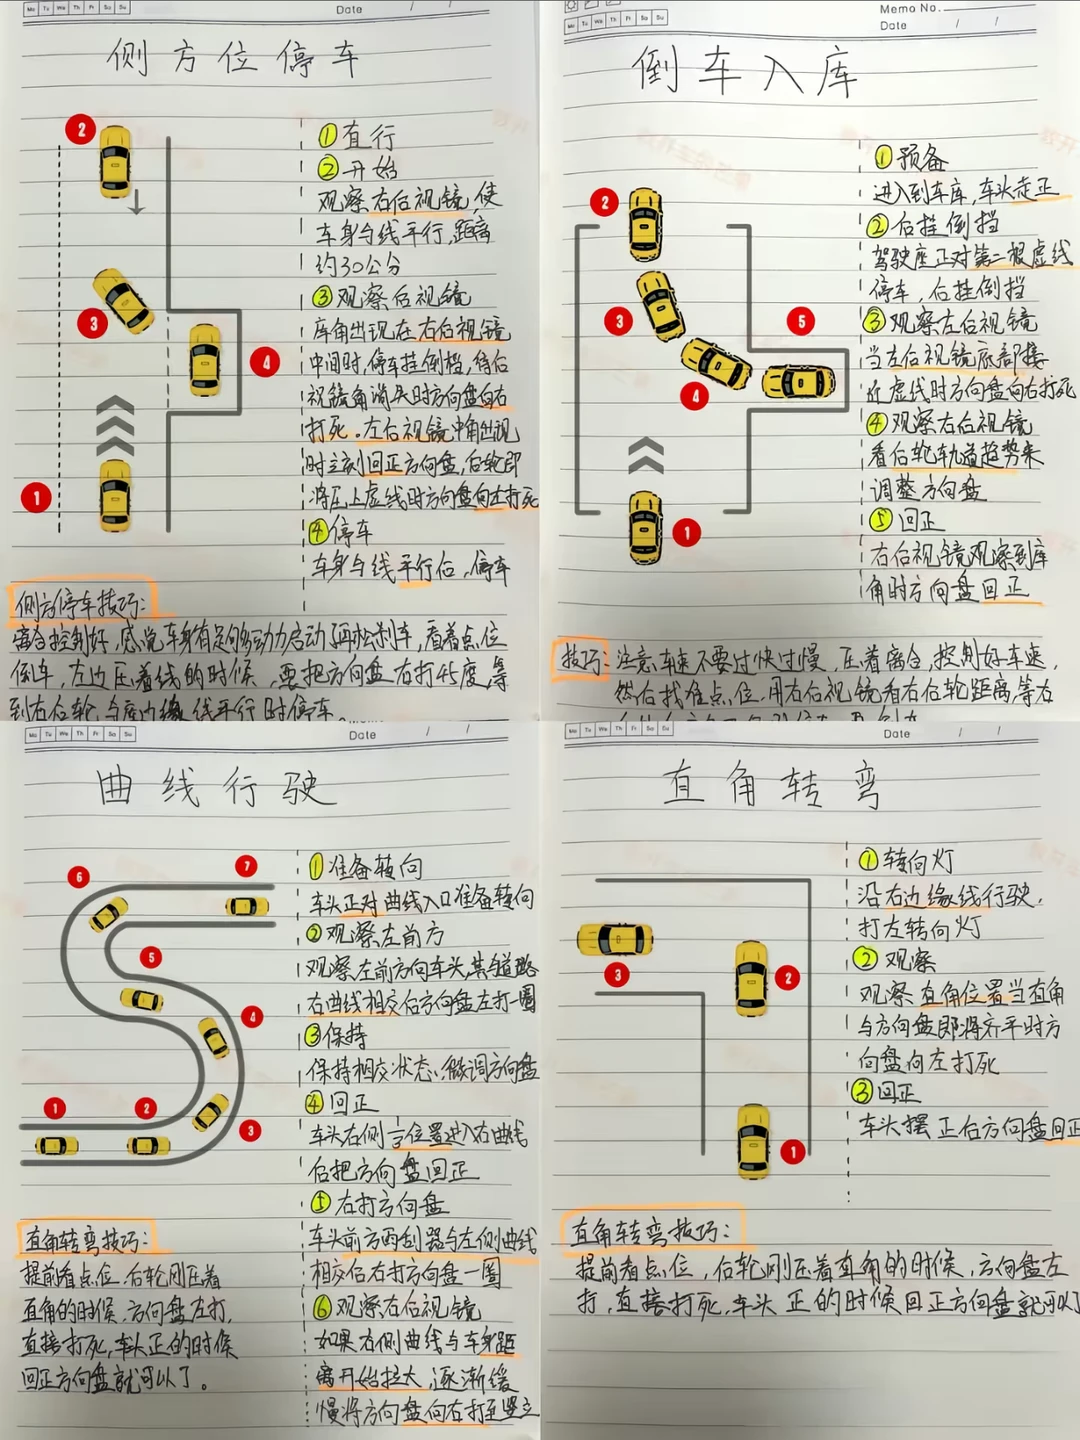 Mo Tu We Th Fr Sa Su
Date / /
侧方位停车
2
3
4
1
①直行
②开始
观察右后视镜,使
车身与线平行,距离
约30公分
③观察后视镜
库角出现在右后视镜
中间时,停车挂倒挡,待后
视镜角消失时方向盘向右
打死。左后视镜中角出现
时立刻回正方向盘,后轮即
将压上虚线时方向盘向左打死
④停车
车身与线平行后,停车
侧方停车技巧:
离合控制好,感觉车身有足够多动力启动再松刹车,看着点位
倒车,左边压着线的时候,要把方向盘右打45度,等
到右后轮与库边缘线平行时停车。
Memo No.
Date / /
倒车入库
2
3
5
4
1
①预备
进入到车库,车头走正
②后挂倒挡
驾驶座正对第二根虚线
停车,后挂倒挡
③观察左后视镜
当左后视镜底部接
近虚线时方向盘向右打死
④观察右后视镜
看后轮轨道趋势来
调整方向盘
⑤回正
右后视镜观察到库
角时方向盘回正
技巧:注意车速不要过快过慢,压着离合,控制好车速,
然后找准点位,用右后视镜看右后轮距离,等右
Mo Tu We Th Fr Sa Su
Date / /
曲线行驶
7
6
5
4
1
2
3
①准备转向
车头正对曲线入口准备转向
②观察左前方
观察左前方向车头,其与道路
右曲线相交后方向盘左打一圈
③保持
保持相交状态,微调方向盘
④回正
车头右侧⅓位置进入右曲线
后把方向盘回正
⑤右打方向盘
车头前方雨刮器与左侧曲线
相交后右打方向盘一圈
⑥观察右后视镜
如果右侧曲线与车身距
离开始拉大,逐渐缓
慢将方向盘向右打至竖立
直角转弯技巧:
提前看点位,后轮刚压着
直角的时候,方向盘左打,
直接打死,车头正的时候
回正方向盘就可以了。
Mo Tu We Th Fr Sa Su
Date / /
直角转弯
3
2
1
①转向灯
沿右边缘线行驶,
打左转向灯
②观察
观察直角位置当直角
与方向盘即将齐平时方
向盘向左打死
③回正
车头摆正后方向盘回正
直角转弯技巧:
提前看点位,后轮刚压着直角的时候,方向盘左
打,直接打死,车头正的时候回正方向盘就可以了